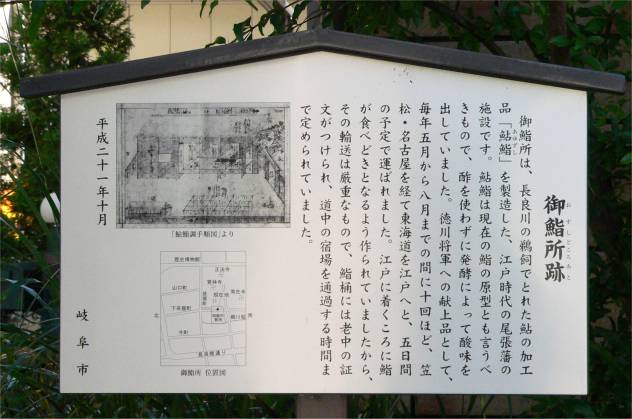 御鮨所跡
お すしどころあと
御鮨所は、長良川の鵜飼でとれた鮎の加工
品「鮎鮨」を製造した、江戸時代の尾張藩の
あゆずし
施設です。鮎鮨は現在の鮨の原型とも言うべ
きもので、酢を使わずに発酵によって酸味を
出していました。徳川将軍への献上品として、
毎年五月から八月までの間に十回ほど、笠
松・名古屋を経て東海道を江戸へと、五日間
の予定で運ばれました。江戸に着くころに鮨
が食べどきとなるよう作られていましたから、
その輸送は厳重なもので、鮨桶には老中の証
文がつけられ、道中の宿場を通過する時間ま
で定められていました。
「鮎鮨調手順図」より
歴史博物館
正法寺
山口町
現在地
下茶屋町
中町
北
長良橋通り
御鮨所 位置図
平成二十一年十月
岐阜市